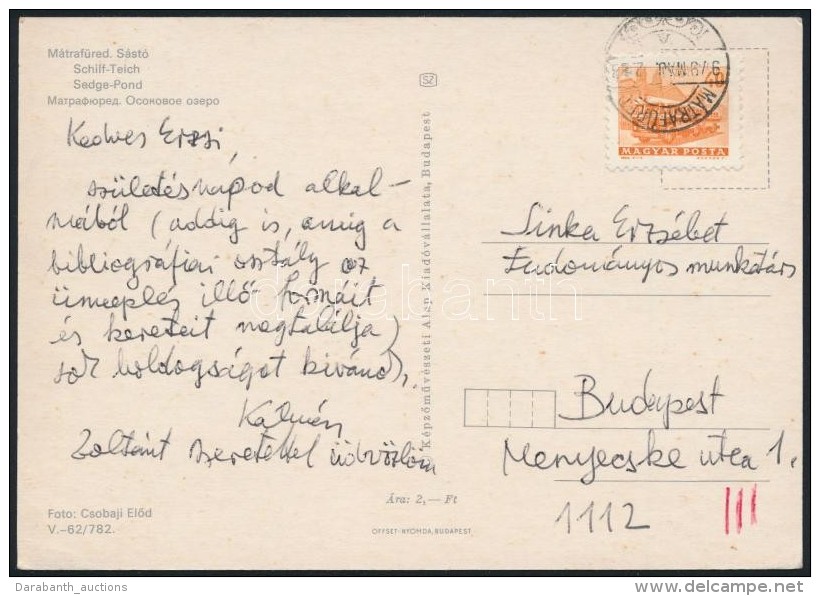 Mátrafüred. Sástó
Schilf-Teich
Sedge-Pond
Матрафюред. Осоковое озеро
Kedves Erzsi,
születésnapod alkal-
mából (addig is, amig a
bibliográfiai osztály az
ünneplés illő formáit
és kereteit megtalálja)
sok boldogságot kivánok,
Kálmán
Zoltánt szeretettel üdvözlöm
Foto: Csobaji Előd
V.-62/782.
SZ
Képzőművészeti Alap Kiadóvállalata, Budapest
Ára: 2,— Ft
OFFSET-NYOMDA, BUDAPEST
MÁTRAFÜRED
MAGYAR POSTA
Sinka Erzsébet
Tudományos munkatárs
Budapest
Menyecske utca 1.
1112
III
darabanth
Darabanth_auctions